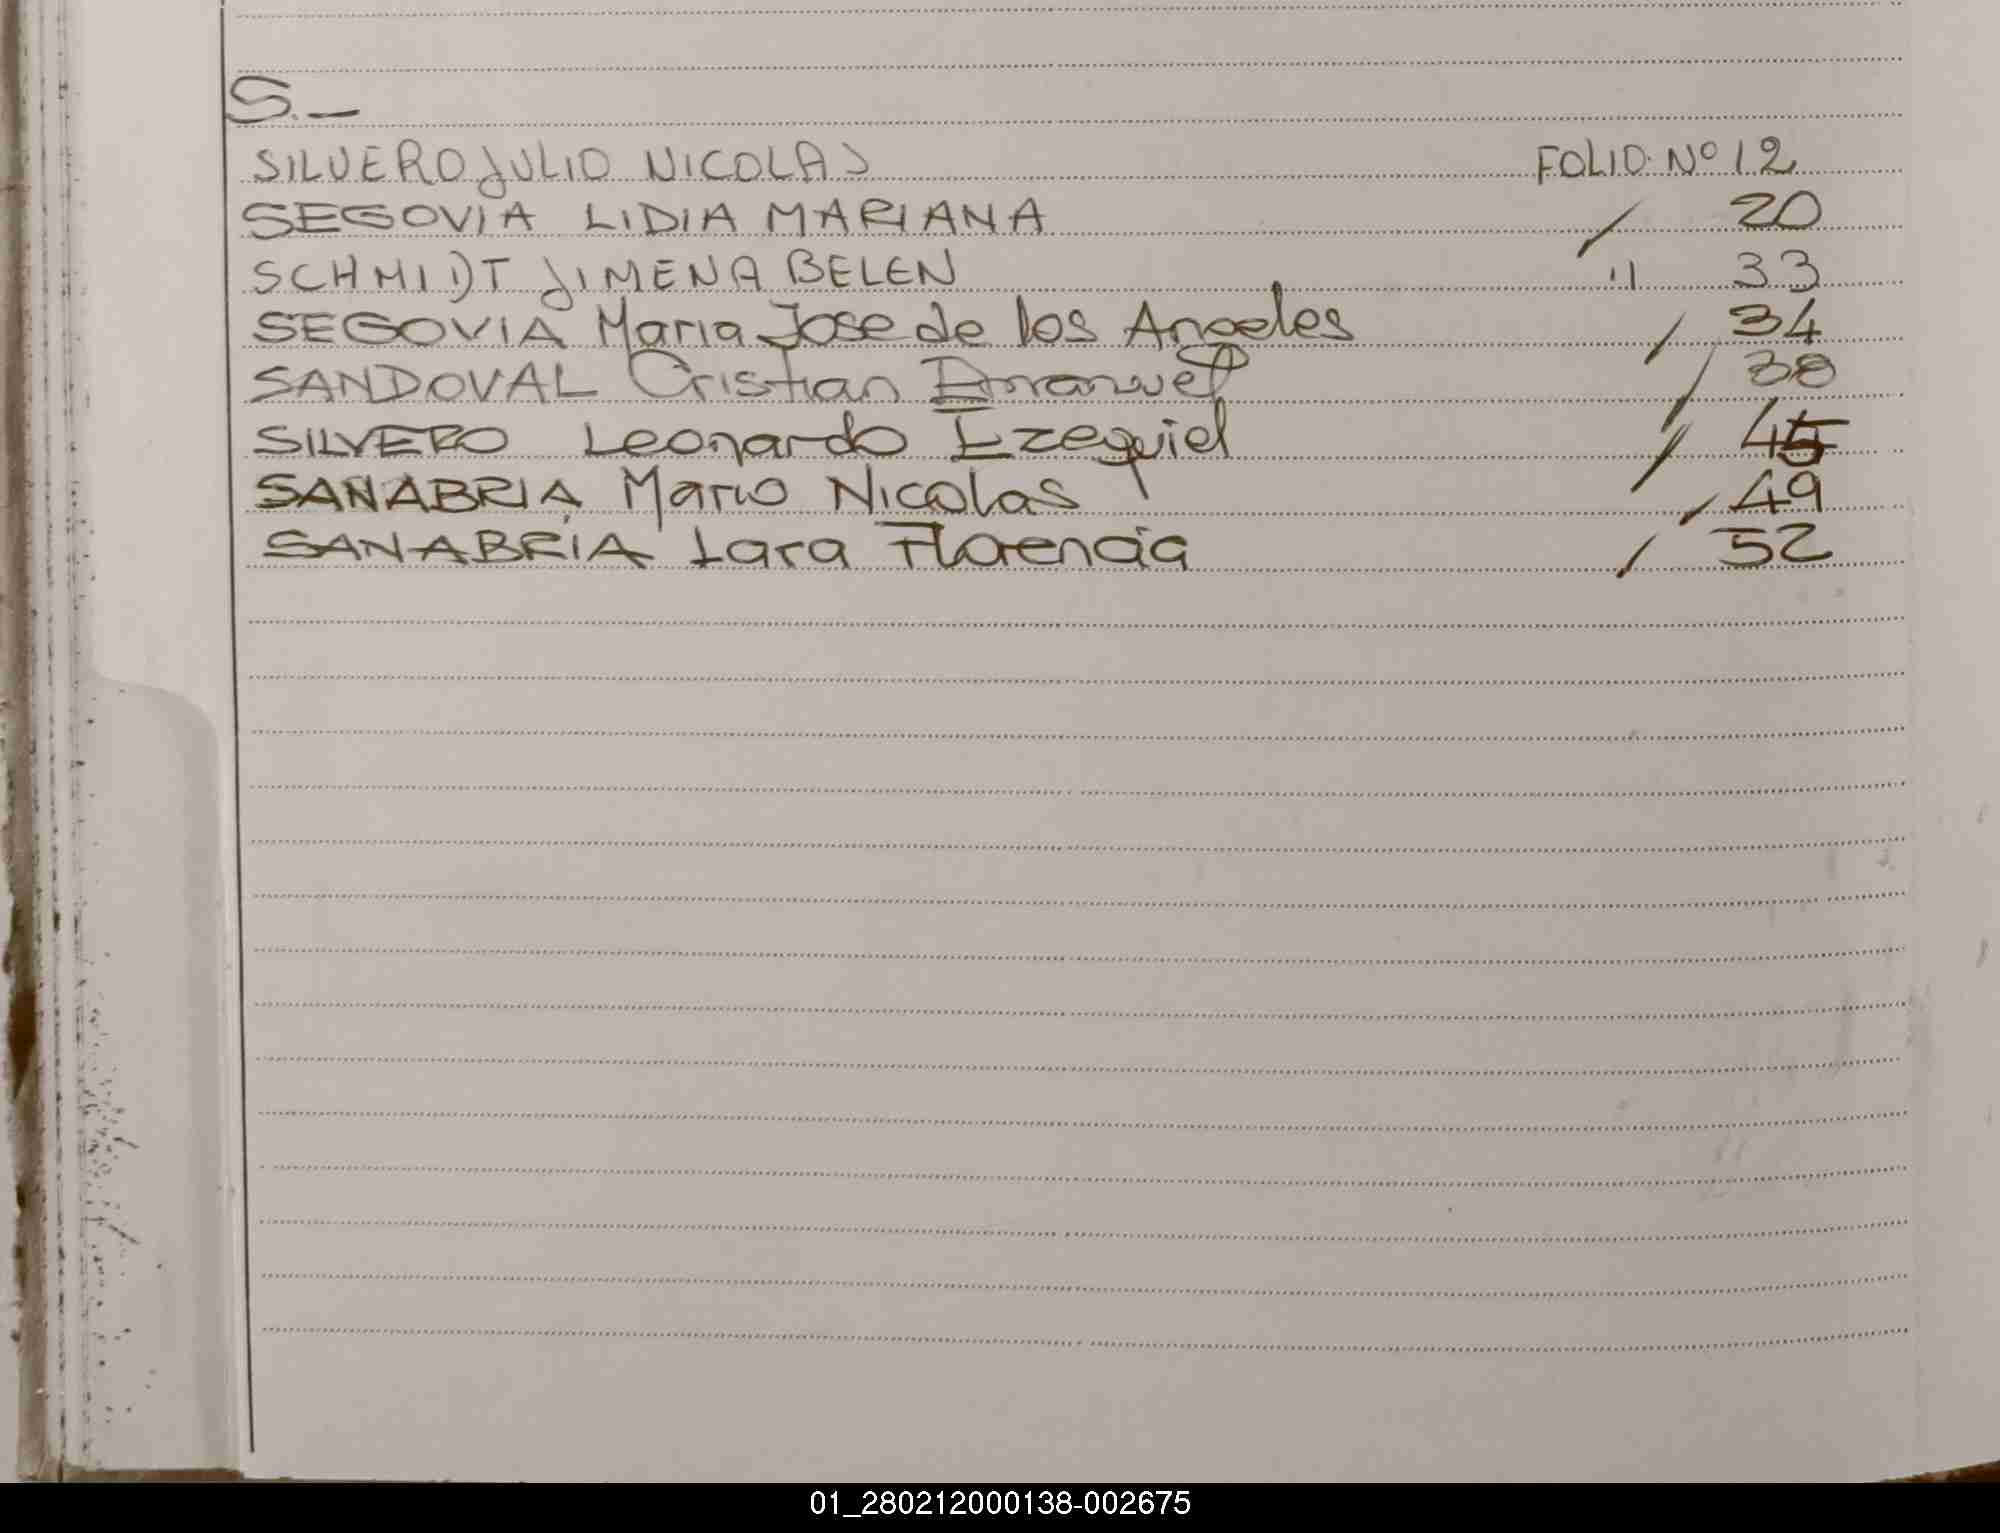 S.—
SILVERO JULIO NICOLAS FOLIO Nº 12
SEGOVIA LIDIA MARIANA / 20
SCHMIDT JIMENA BELEN " 33
SEGOVIA Maria Jose de los Angeles / 34
SANDOVAL Cristian Emanuel / 38
SILVERO Leonardo Ezequiel / 45
SANABRIA Mario Nicolas / 49
SANABRIA Lara Florencia / 52
01_280212000138-002675